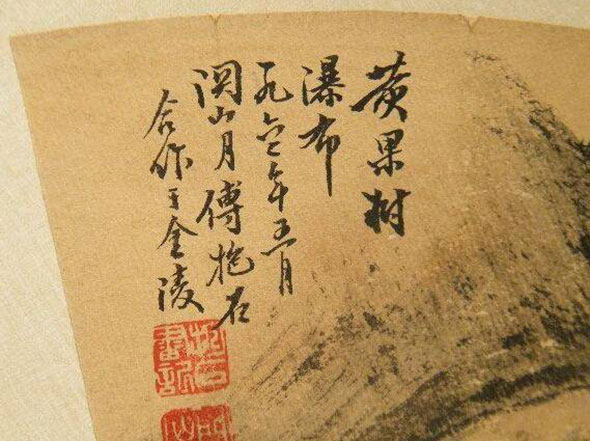 黄果樹
瀑布
一九六〇年五月
関山月傅抱石
合作于金陵